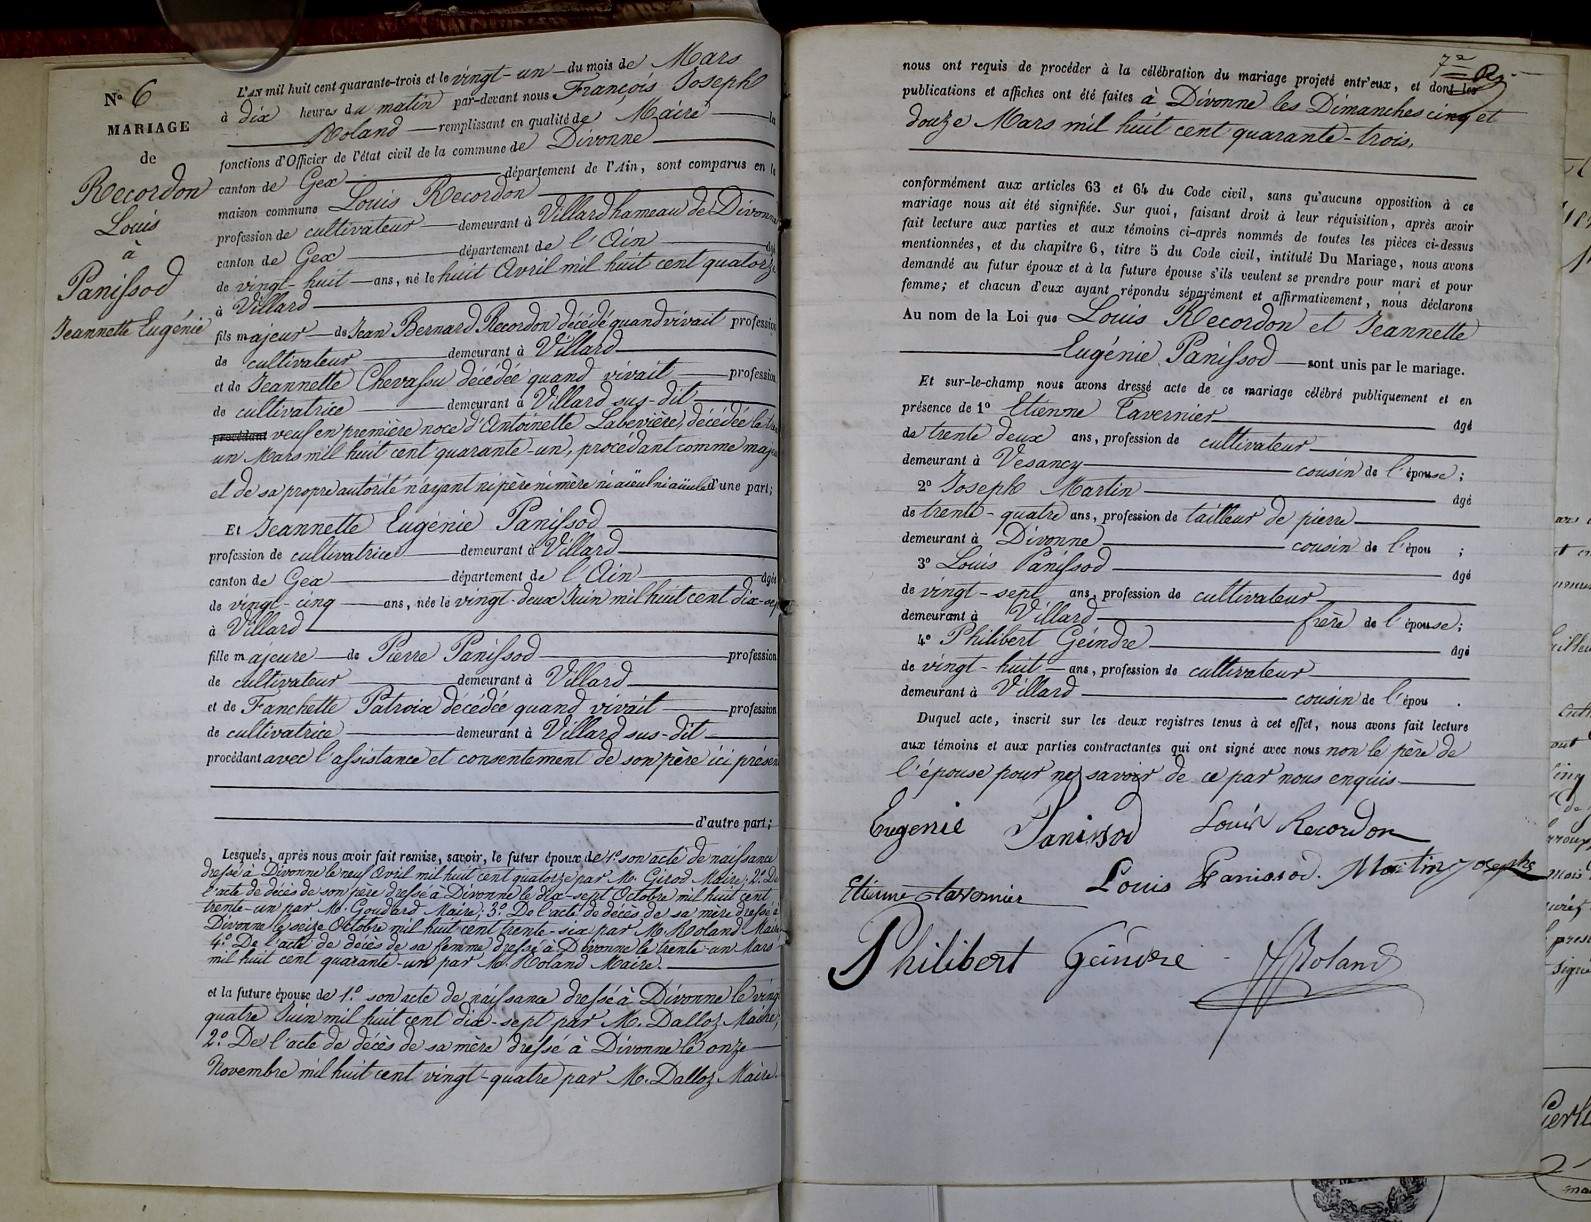 N° 6
MARIAGE
de
Recordon
Louis
à
Panissod
Jeannette Eugénie
L'AN mil huit cent quarante-trois et le vingt-un du mois de Mars
à dix heures du matin par-devant nous François Joseph
Roland remplissant en qualité de Maire la
fonctions d'Officier de l'état civil de la commune de Divonne
canton de Gex département de l'Ain, sont comparus en la
maison commune Louis Recordon
profession de cultivateur demeurant à Villard hameau de Divonne
canton de Gex département de l'Ain âgé
de vingt-huit ans, né le huit Avril mil huit cent quatorze
à Villard
fils majeur de Jean Bernard Recordon décédé quand vivait profession
de cultivateur demeurant à Villard
et de Jeannette Chevassu décédée quand vivait profession
de cultivatrice demeurant à Villard sus-dit
procédant veuf en première noce d'Antoinette Labevière, décédée le
un Mars mil huit cent quarante-un, procédant comme
et de sa propre autorité n'ayant ni père ni mère ni aïeul ni aïeule d'une part;
Et Jeannette Eugénie Panissod
profession de cultivatrice demeurant à Villard
canton de Gex département de l'Ain âgée
de vingt-cinq ans, née le vingt-deux Juin mil huit cent dix-sep
à Villard
fille majeure de Pierre Panissod profession
de cultivateur demeurant à Villard
et de Fanchette Patroix décédée quand vivait profession
de cultivatrice demeurant à Villard sus-dit
procédant avec l'assistance et consentement de son père ici présen
d'autre part;
Lesquels, après nous avoir fait remise, savoir, le futur époux de 1° son acte de naissance
dressé à Divonne le neuf Avril mil huit cent quatorze par M. Girod Maire; 2° De
l'acte de décès de son père dressé à Divonne le dix-sept Octobre mil huit cent
trente-un par M. Goudard Maire; 3° De l'acte de décès de sa mère dressé à
Divonne le seize Octobre mil huit cent trente-six par M. Roland Maire
4° De l'acte de décès de sa femme dressé à Divonne le trente-un Mars
mil huit cent quarante-un par M. Roland Maire.
et la future épouse de 1° son acte de naissance dressé à Divonne le vingt
quatre Juin mil huit cent dix-sept par M. Dalloz Maire,
2° De l'acte de décès de sa mère dressé à Divonne le onze
Novembre mil huit cent vingt-quatre par M. Dalloz Maire.
nous ont requis de procéder à la célébration du mariage projeté entr'eux, et dont les
publications et affiches ont été faites à Divonne les Dimanches cinq et
douze Mars mil huit cent quarante-trois,
conformément aux articles 63 et 64 du Code civil, sans qu'aucune opposition à ce
mariage nous ait été signifiée. Sur quoi, faisant droit à leur réquisition, après avoir
fait lecture aux parties et aux témoins ci-après nommés de toutes les pièces ci-dessus
mentionnées, et du chapitre 6, titre 5 du Code civil, intitulé Du Mariage, nous avons
demandé au futur époux et à la future épouse s'ils veulent se prendre pour mari et pour
femme; et chacun d'eux ayant répondu séparément et affirmativement, nous déclarons
Au nom de la Loi que Louis Recordon et Jeannette
Eugénie Panissod sont unis par le mariage.
Et sur-le-champ nous avons dressé acte de ce mariage célébré publiquement et en
présence de 1° Etienne Tavernier âgé
de trente deux ans, profession de cultivateur
demeurant à Vesancy cousin de l'épouse;
2° Joseph Martin âgé
de trente-quatre ans, profession de tailleur de pierre
demeurant à Divonne cousin de l'épou ;
3° Louis Panissod âgé
de vingt-sept ans, profession de cultivateur
demeurant à Villard frère de l'épouse;
4° Philibert Geindre âgé
de vingt-huit ans, profession de cultivateur
demeurant à Villard cousin de l'épou .
Duquel acte, inscrit sur les deux registres tenus à cet effet, nous avons fait lecture
aux témoins et aux parties contractantes qui ont signé avec nous non le père de
l'épouse pour ne savoir de ce par nous enquis
Eugenie Panissod Louis Recordon
Etienne Tavernier Louis Panissod. Martin Joseph
Philibert Geindre Roland